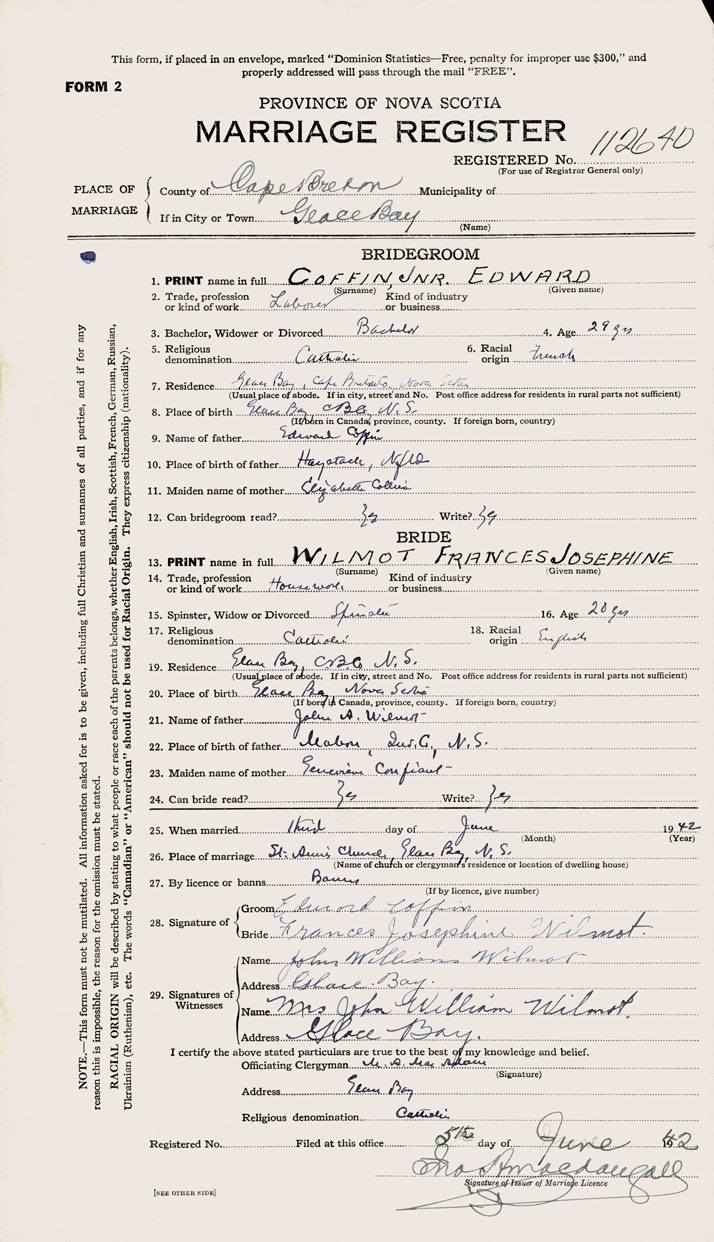 This form, if placed in an envelope, marked "Dominion Statistics—Free, penalty for improper use $300," and
properly addressed will pass through the mail "FREE".
FORM 2
PROVINCE OF NOVA SCOTIA
MARRIAGE REGISTER
REGISTERED No. 112640
(For use of Registrar General only)
PLACE OF MARRIAGE
County of Cape Breton Municipality of
If in City or Town Glace Bay
(Name)
BRIDEGROOM
1. PRINT name in full COFFIN, JNR. EDWARD
(Surname) (Given name)
2. Trade, profession or kind of work Laborer Kind of industry or business
3. Bachelor, Widower or Divorced Bachelor 4. Age 29 yrs
5. Religious denomination Catholic 6. Racial origin French
7. Residence Glace Bay, Cape Breton Co, Nova Scotia
(Usual place of abode. If in city, street and No. Post office address for residents in rural parts not sufficient)
8. Place of birth Glace Bay, CB Co, N.S.
(If born in Canada, province, county. If foreign born, country)
9. Name of father Edward Coffin
10. Place of birth of father Haystack, Nfld
11. Maiden name of mother Elizabeth Collins
12. Can bridegroom read? Yes Write? Yes
BRIDE
13. PRINT name in full WILMOT FRANCES JOSEPHINE
(Surname) (Given name)
14. Trade, profession or kind of work Housework Kind of industry or business
15. Spinster, Widow or Divorced Spinster 16. Age 20 yrs
17. Religious denomination Catholic 18. Racial origin English
19. Residence Glace Bay, CB Co, N.S.
(Usual place of abode. If in city, street and No. Post office address for residents in rural parts not sufficient)
20. Place of birth Glace Bay, Nova Scotia
(If born in Canada, province, county. If foreign born, country)
21. Name of father John A. Wilmot
22. Place of birth of father Mabou, Inv. C, N.S.
23. Maiden name of mother Genevieve Confiant
24. Can bride read? Yes Write? Yes
25. When married third day of June 1942
(Month) (Year)
26. Place of marriage St. Ann's Church, Glace Bay, N.S.
(Name of church or clergyman's residence or location of dwelling house)
27. By licence or banns Banns
(If by licence, give number)
28. Signature of
Groom Edward Coffin
Bride Frances Josephine Wilmot.
29. Signatures of Witnesses
Name John Williams Wilmot
Address Glace Bay.
Name Mrs John William Wilmot.
Address Glace Bay.
I certify the above stated particulars are true to the best of my knowledge and belief.
Officiating Clergyman M. A. MacAdam
(Signature)
Address Glace Bay
Religious denomination Catholic
Registered No. Filed at this office 5th day of June 1942
Jno A Macdougall
Signature of Issuer of Marriage Licence
[SEE OTHER SIDE]
NOTE.—This form must not be mutilated. All information asked for is to be given, including full Christian and surnames of all parties, and if for any
reason this is impossible, the reason for the omission must be stated.
RACIAL ORIGIN will be described by stating to what people or race each of the parents belongs, whether English, Irish, Scottish, French, German, Russian,
Ukrainian (Ruthenian), etc. The words "Canadian" or "American" should not be used for Racial Origin. They express citizenship (nationality).